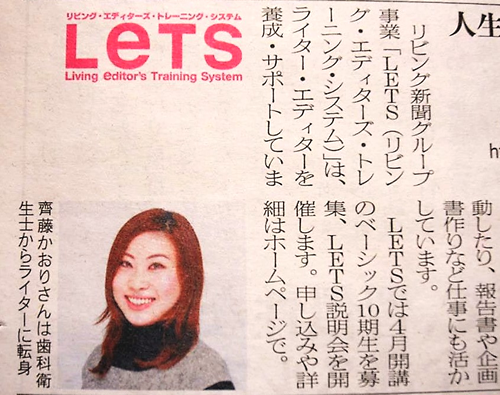 リビング・エディターズ・トレーニング・システム
LETS
Living editor's Training System
人生
リビング新聞グループ
事業「LETS（リビン
グ・エディターズ・トレ
ーニング・システム）」は、
ライター・エディターを
養成・サポートしていま
動したり、報告書や企画
書作りなど仕事にも活か
しています。
LETSでは4月開講
のベーシック10期生を募
集、LETS説明会を開
催します。申し込みや詳
細はホームページで。
齊藤かおりさんは歯科衛
生士からライターに転身